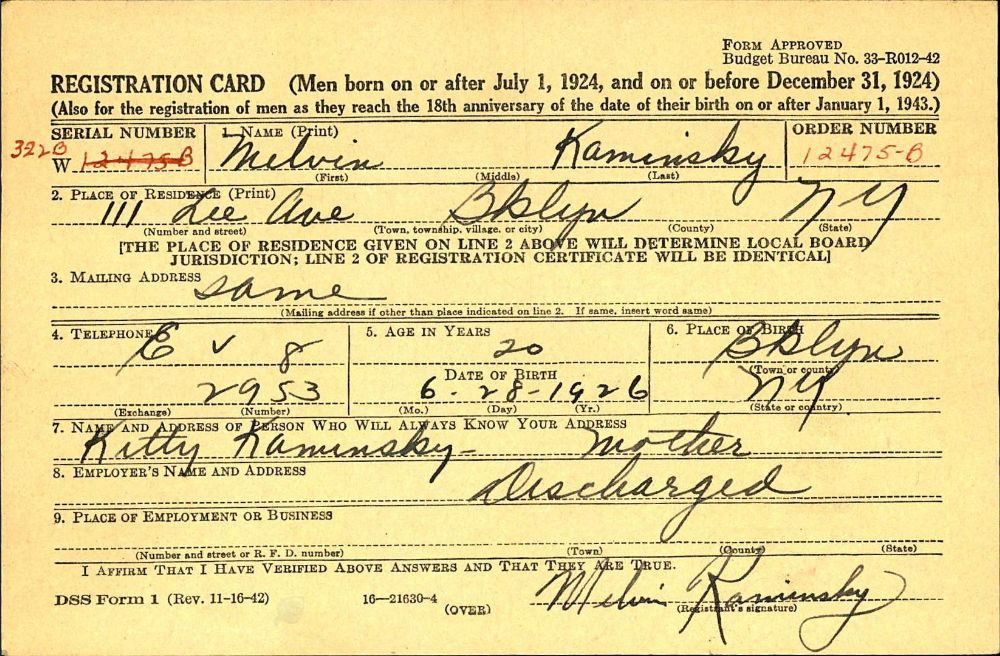 FORM APPROVED
Budget Bureau No. 33–R012–42
REGISTRATION CARD (Men born on or after July 1, 1924, and on or before December 31, 1924)
(Also for the registration of men as they reach the 18th anniversary of the date of their birth on or after January 1, 1943.)
SERIAL NUMBER 1. NAME (Print) ORDER NUMBER
322B
W 12475B Melvin Kaminsky 12475-B
(First) (Middle) (Last)
2. PLACE OF RESIDENCE (Print)
111 Lee Ave Bklyn NY
(Number and street) (Town, township, village, or city) (County) (State)
[THE PLACE OF RESIDENCE GIVEN ON LINE 2 ABOVE WILL DETERMINE LOCAL BOARD
JURISDICTION; LINE 2 OF REGISTRATION CERTIFICATE WILL BE IDENTICAL]
3. MAILING ADDRESS
same
(Mailing address if other than place indicated on line 2. If same, insert word same)
4. TELEPHONE 5. AGE IN YEARS 6. PLACE OF BIRTH
Ev 8 20 Bklyn
DATE OF BIRTH (Town or county)
2953 6-28-1926 NY
(Exchange) (Number) (Mo.) (Day) (Yr.) (State or country)
7. NAME AND ADDRESS OF PERSON WHO WILL ALWAYS KNOW YOUR ADDRESS
Kitty Kaminsky - Mother
8. EMPLOYER'S NAME AND ADDRESS
Discharged
9. PLACE OF EMPLOYMENT OR BUSINESS
(Number and street or R. F. D. number) (Town) (County) (State)
I AFFIRM THAT I HAVE VERIFIED ABOVE ANSWERS AND THAT THEY ARE TRUE.
DSS Form 1 (Rev. 11-16-42) 16—21630-4 (OVER) Melvin Kaminsky
(Registrant's signature)